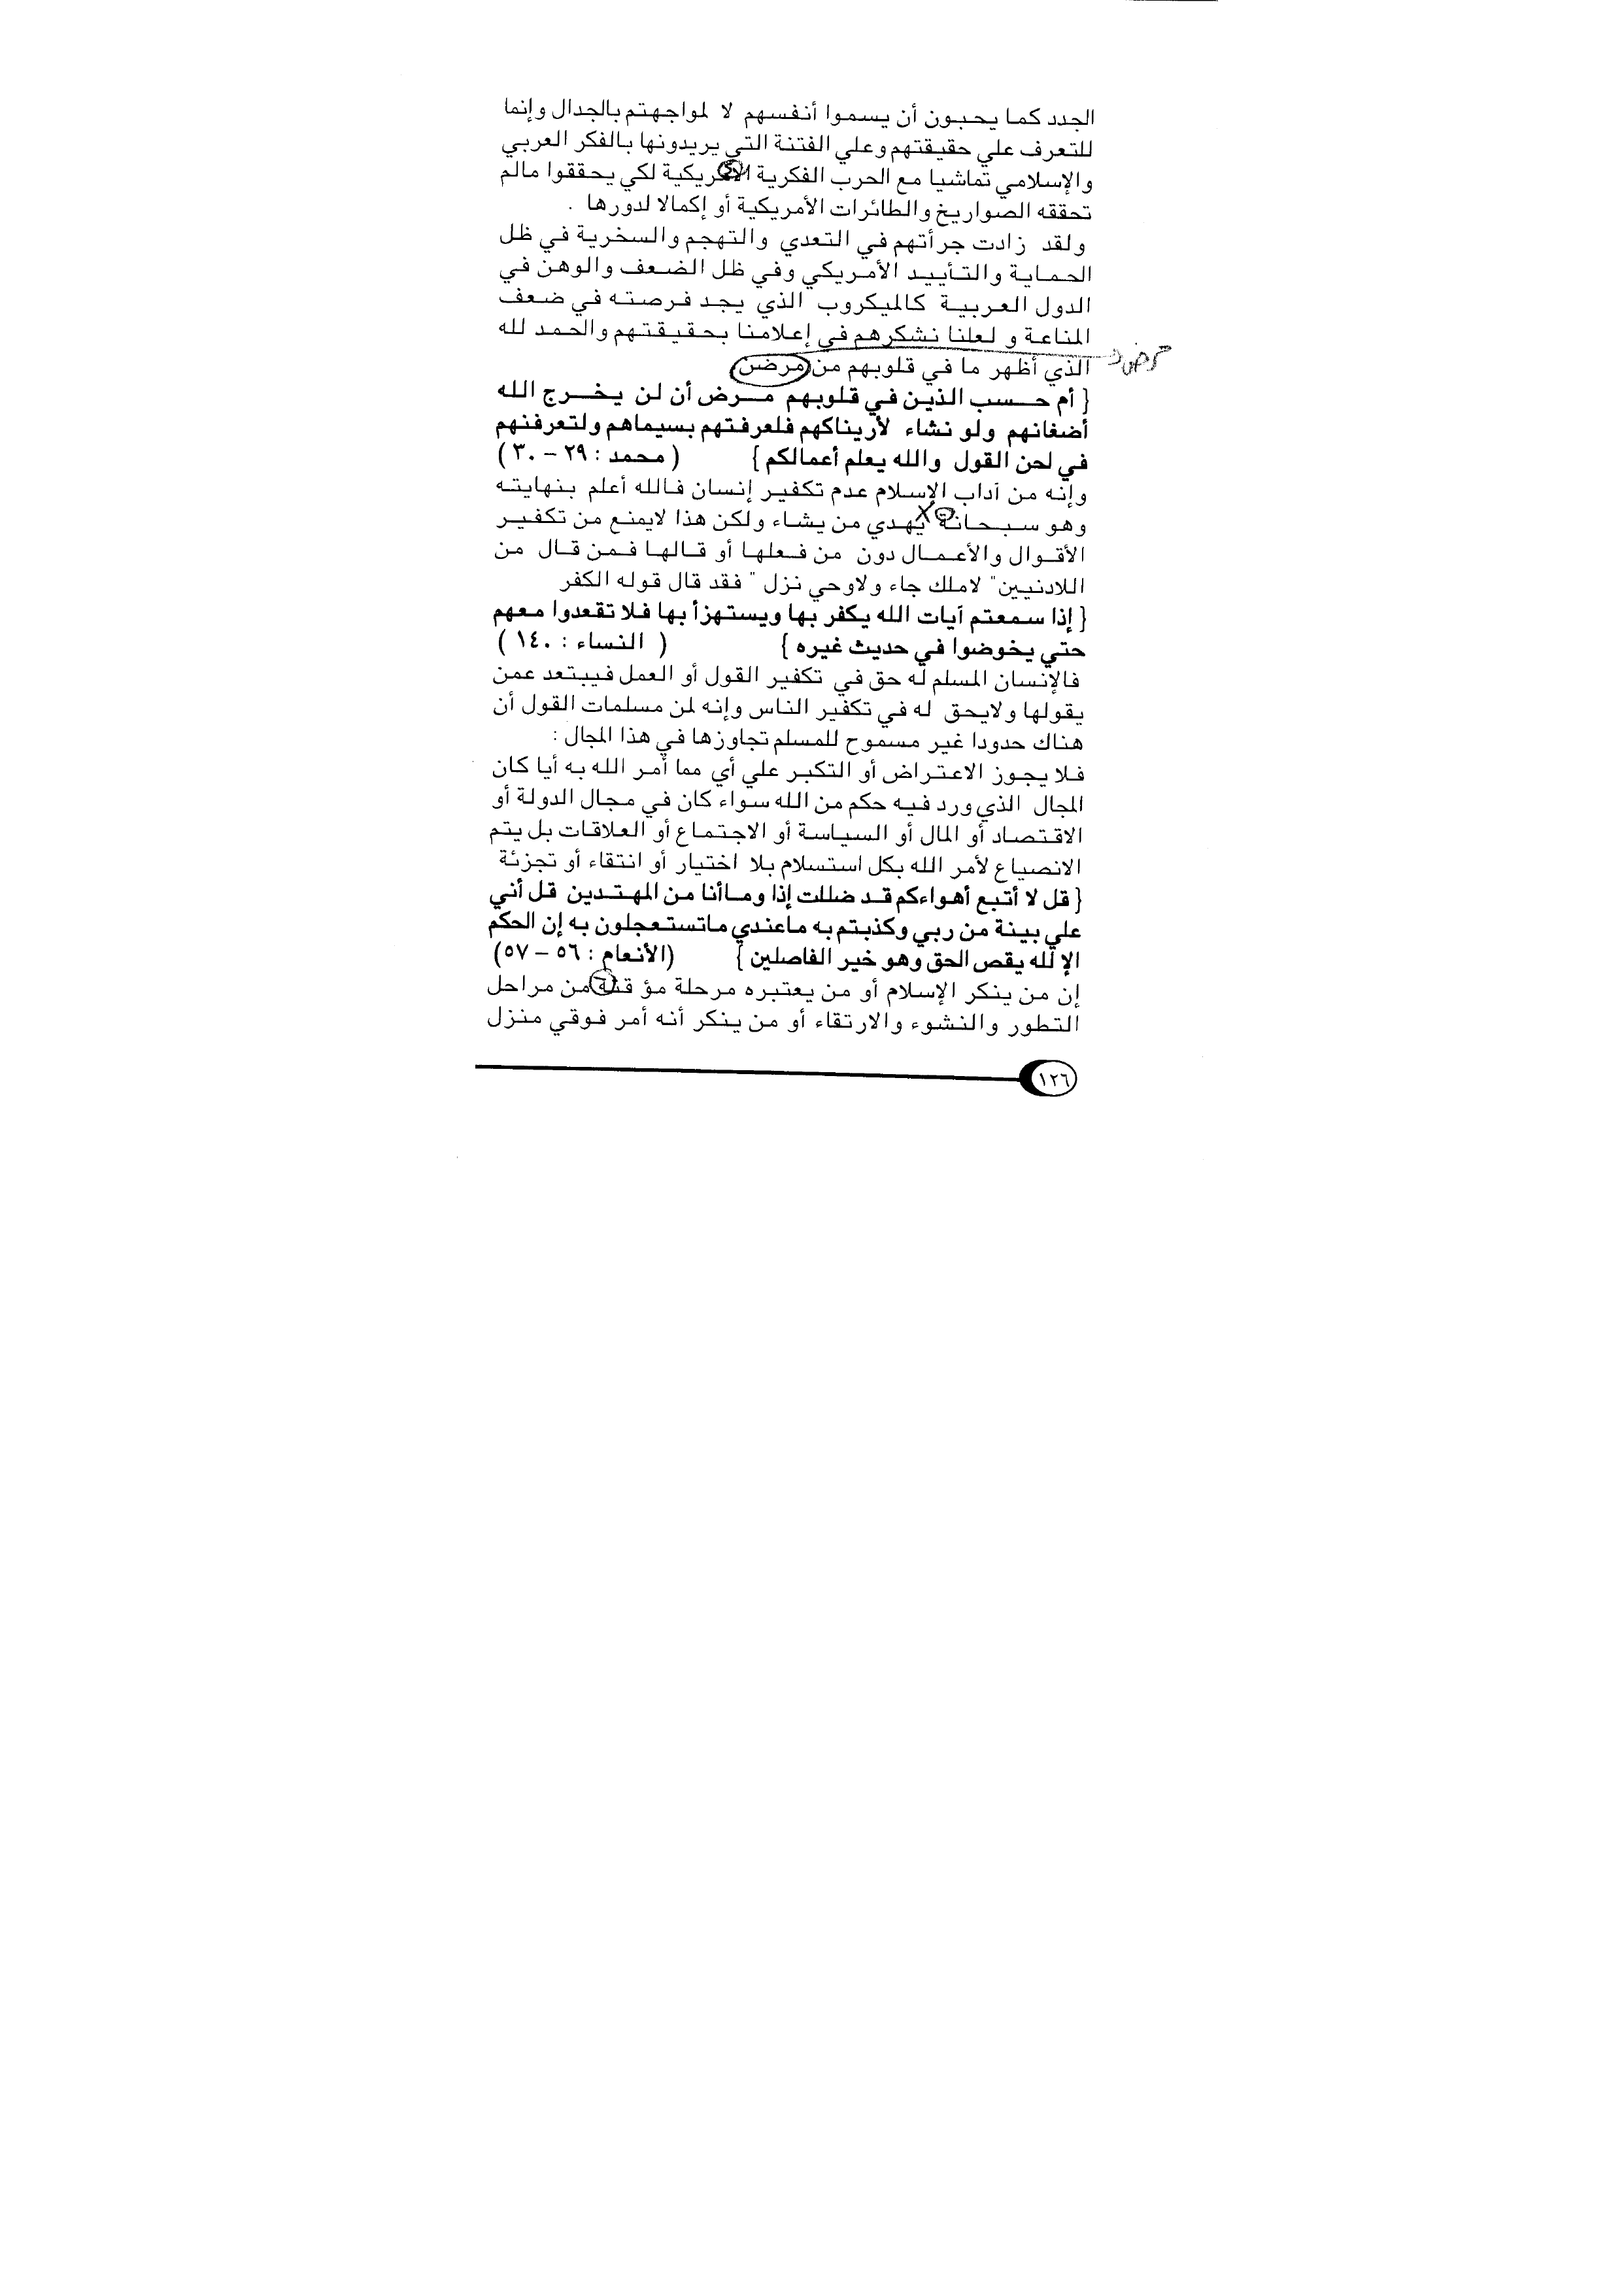 الجدد كما يحبون أن يسموا أنفسهم لا لمواجهتم بالجدال وإنما
للتعرف علي حقيقتهم وعلي الفتنة التي يريدونها بالفكر العربي
والإسلامي تماشيا مع الحرب الفكرية الأمريكية لكي يحققوا مالم
تحققه الصواريخ والطائرات الأمريكية أو إكمالا لدورها .
ولقد زادت جرأتهم في التعدي والتهجم والسخرية في ظل
الحماية والتأييد الأمريكي وفي ظل الضعف والوهن في
الدول العربية كالميكروب الذي يجد فرصته في ضعف
المناعة و لعلنا نشكرهم في إعلامنا بحقيقتهم والحمد لله
الذي أظهر ما في قلوبهم من مرضن
{ أم حسب الذين في قلوبهم مرض أن لن يخرج الله
أضغانهم ولو نشاء لأريناكهم فلعرفتهم بسيماهم ولتعرفنهم
في لحن القول والله يعلم أعمالكم } ( محمد : ٢٩ – ٣٠ )
وإنه من آداب الإسلام عدم تكفير إنسان فالله أعلم بنهايته
وهو سبحانه يهدي من يشاء ولكن هذا لايمنع من تكفير
الأقوال والأعمال دون من فعلها أو قالها فمن قال من
اللادنيين" لاملك جاء ولاوحي نزل " فقد قال قوله الكفر
{ إذا سمعتم آيات الله يكفر بها ويستهزأ بها فلا تقعدوا معهم
حتي يخوضوا في حديث غيره } ( النساء : ١٤٠ )
فالإنسان المسلم له حق في تكفير القول أو العمل فيبتعد عمن
يقولها ولايحق له في تكفير الناس وإنه لمن مسلمات القول أن
هناك حدودا غير مسموح للمسلم تجاوزها في هذا المجال :
فلا يجوز الاعتراض أو التكبر علي أي مما أمر الله به أيا كان
المجال الذي ورد فيه حكم من الله سواء كان في مجال الدولة أو
الاقتصاد أو المال أو السياسة أو الاجتماع أو العلاقات بل يتم
الانصياع لأمر الله بكل استسلام بلا اختيار أو انتقاء أو تجزئة
{ قل لا أتبع أهواءكم قد ضللت إذا وماأنا من المهتدين قل أني
علي بينة من ربي وكذبتم به ماعندي ماتستعجلون به إن الحكم
الإ لله يقص الحق وهو خير الفاصلين } (الأنعام : ٥٦ – ٥٧)
إن من ينكر الإسلام أو من يعتبره مرحلة مؤ قتة من مراحل
التطور والنشوء والارتقاء أو من ينكر أنه أمر فوقي منزل
١٢٦